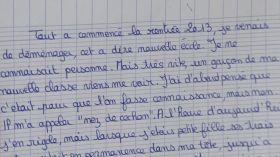 Tout a commencé la rentrée 2013, je venais
de déménager, cet a dire nouvelle école. Je ne
connaissait personne. Mais très vite, un garçon de ma
nouvelle classe viens me voir. J'ai d'abord pensé que
c'était pour que l'on fasse connaissance, mais non
IP m'a appelé "mer de carton". A l'heure d'aujourd'hui
j'en rigole, mais lorsque j'etais petite fille ses mots
en permanence dans ma tête, jusqu'à